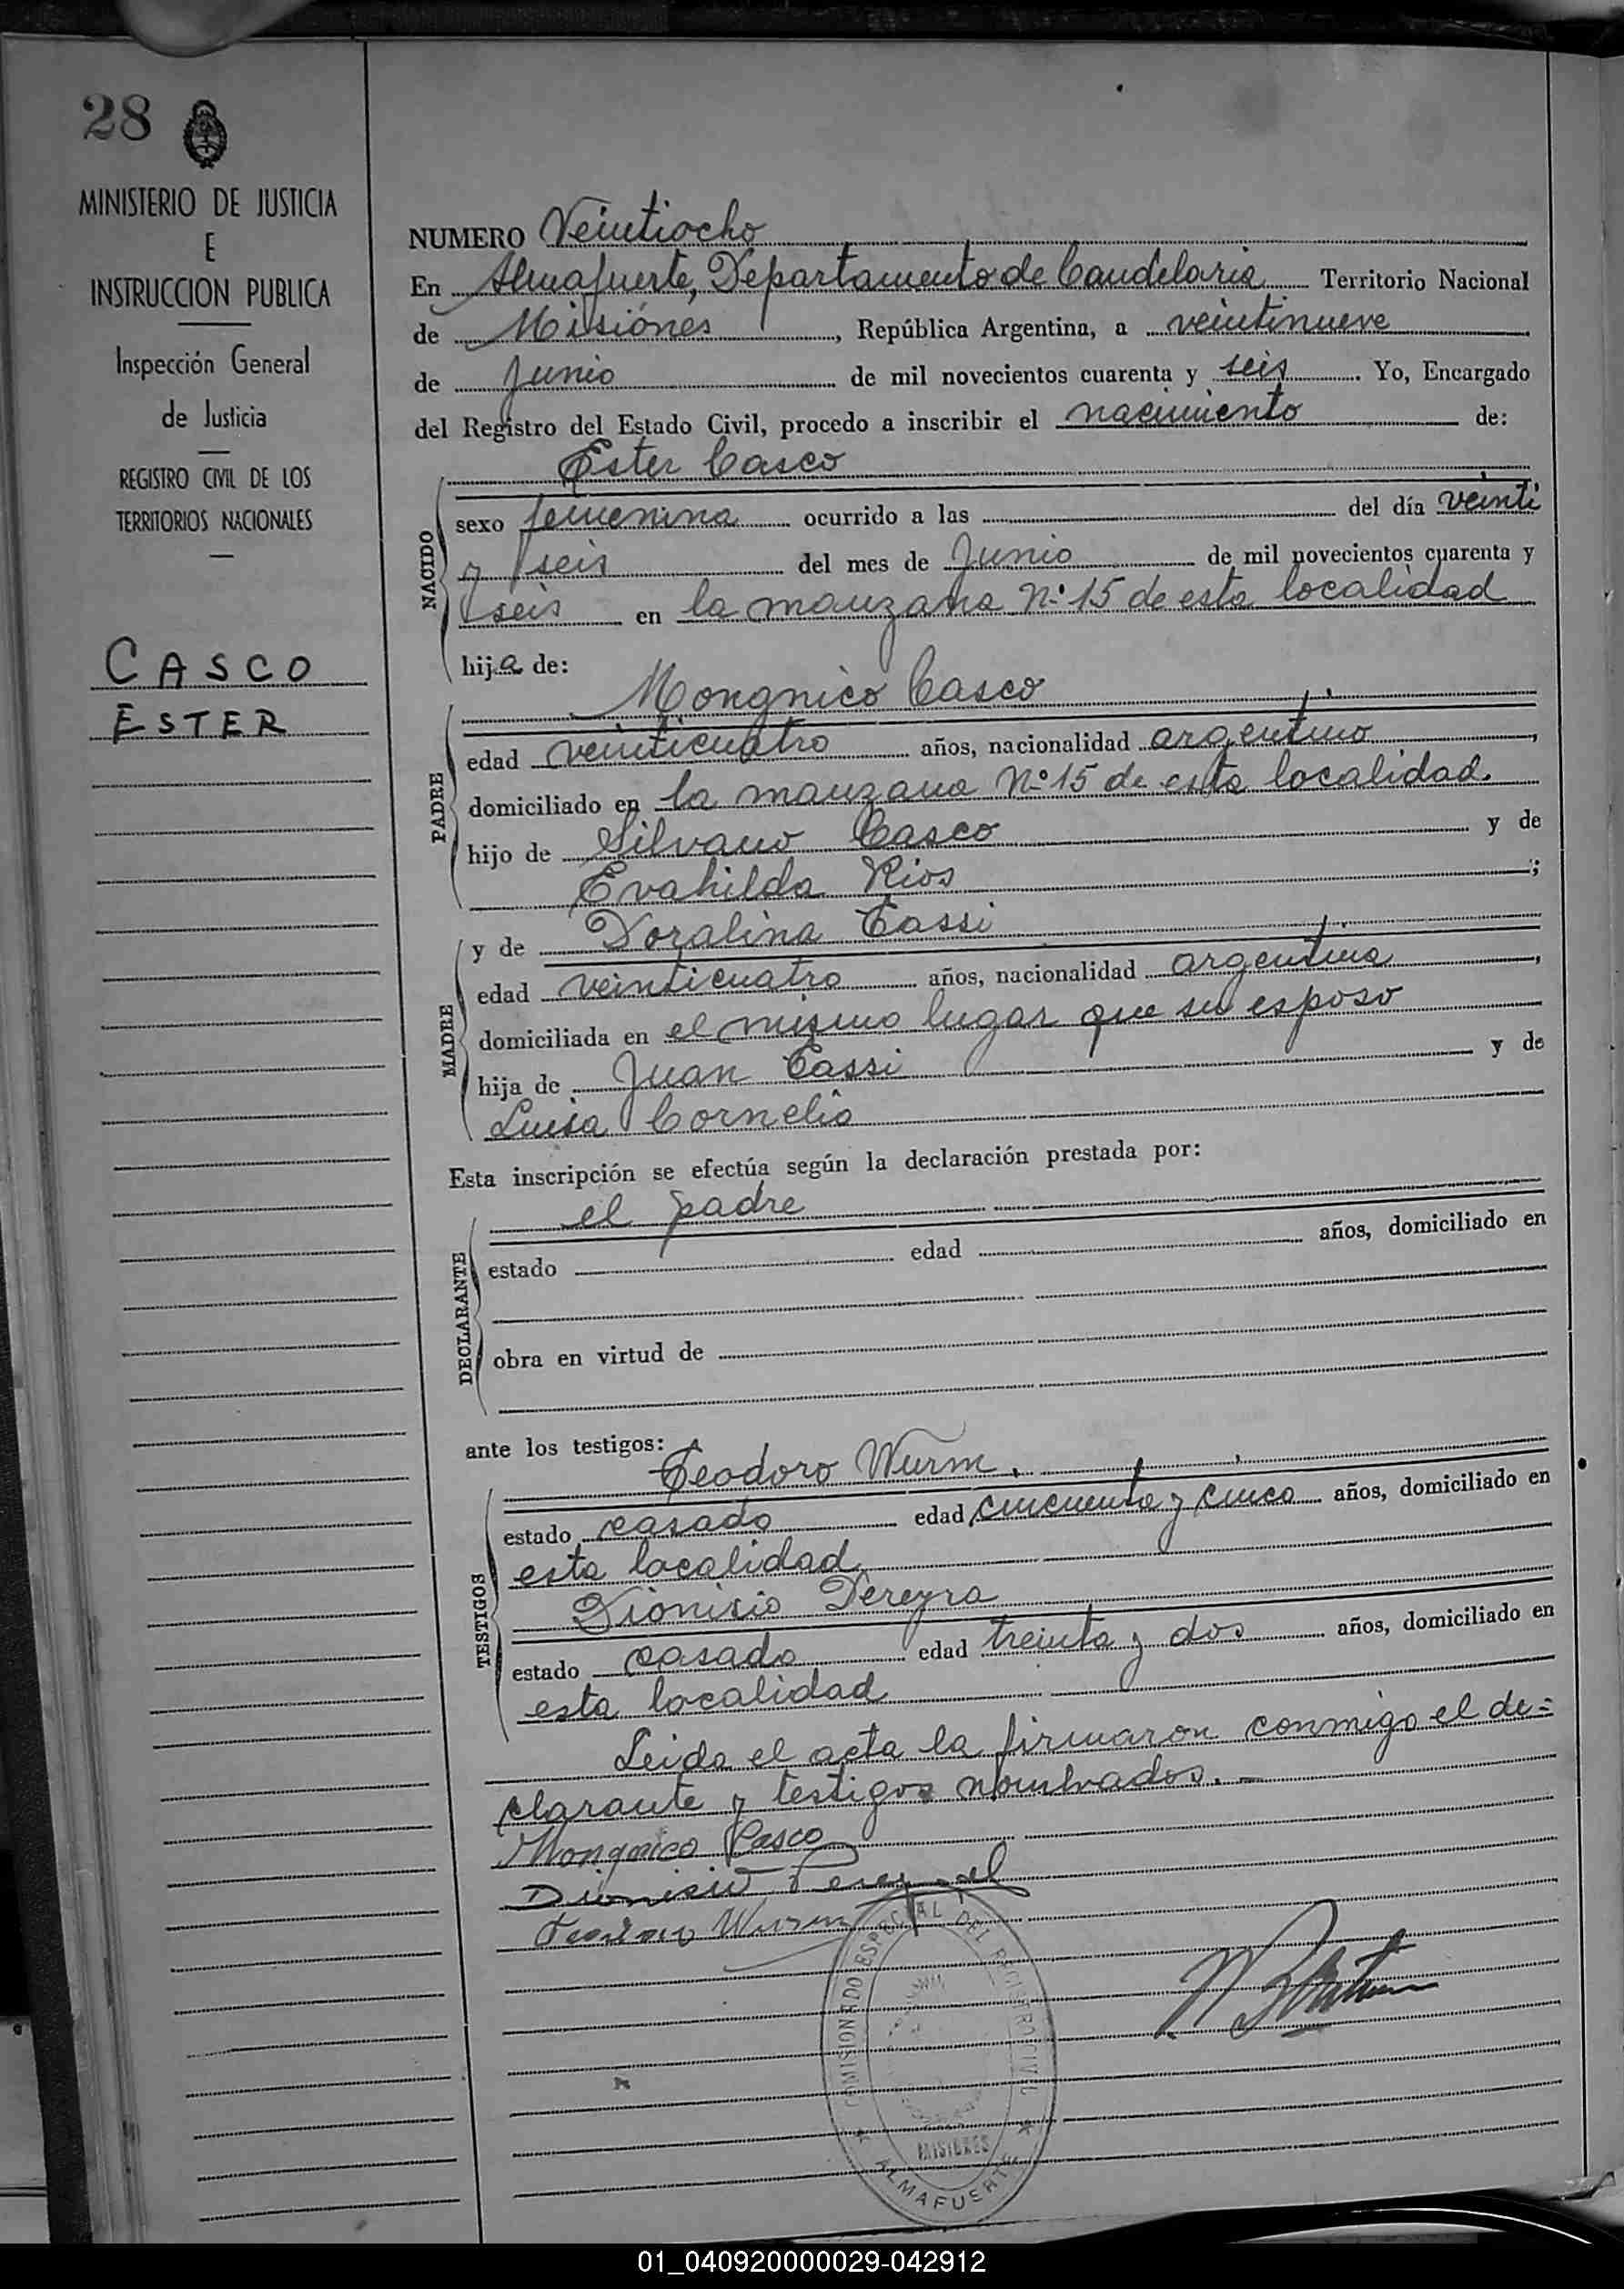 28
MINISTERIO DE JUSTICIA
E
INSTRUCCION PUBLICA
Inspección General
de Justicia
REGISTRO CIVIL DE LOS
TERRITORIOS NACIONALES
CASCO
ESTER
NUMERO Veintiocho
En Almafuerte, Departamento de Candelaria Territorio Nacional
de Misiones, República Argentina, a veintinueve
de Junio de mil novecientos cuarenta y seis. Yo, Encargado
del Registro del Estado Civil, procedo a inscribir el nacimiento de:
Ester Casco
NACIDO
sexo femenina ocurrido a las del día veinti
y seis del mes de Junio de mil novecientos cuarenta y
seis en la manzana Nº 15 de esta localidad
hija de:
Mongnico Casco
PADRE
edad veinticuatro años, nacionalidad argentino,
domiciliado en la manzana Nº 15 de esta localidad.
hijo de Silvano Casco y de
Evahilda Rios;
MADRE
y de Doralina Tassi
edad veinticuatro años, nacionalidad argentina,
domiciliada en el mismo lugar que su esposo
hija de Juan Tassi y de
Luisa Cornelio
Esta inscripción se efectúa según la declaración prestada por:
el padre
DECLARANTE
estado edad años, domiciliado en
obra en virtud de
ante los testigos:
Teodoro Wurm.
TESTIGOS
estado casado edad cincuenta y cinco años, domiciliado en
esta localidad
Dionisio Pereyra
estado casado edad treinta y dos años, domiciliado en
esta localidad
Leida el acta la firmaron conmigo el de=
clarante y testigos nombrados.-
Mongnico Casco
Dionisio
Teodoro Wurm
COMISIONADO ESPECIAL DEL REGISTRO CIVIL
MISIONES
ALMAFUERTE
01_040920000029-042912